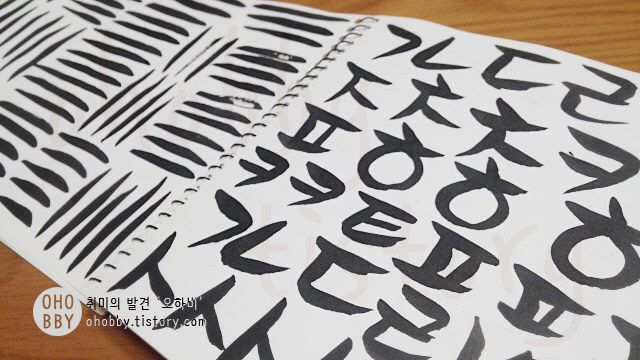 ㄱ ㄷ ㄹ
ㅈ ㅊ ㅊ ㅋ
ㅍ ㅎ ㅎ ㅎ
ㅋ ㅋ ㅌ ㅍ ㅍ
ㄱ ㄷ ㄹ
OHO
BBY
취미의 발견 '오하비'
ohobby.tistory.com